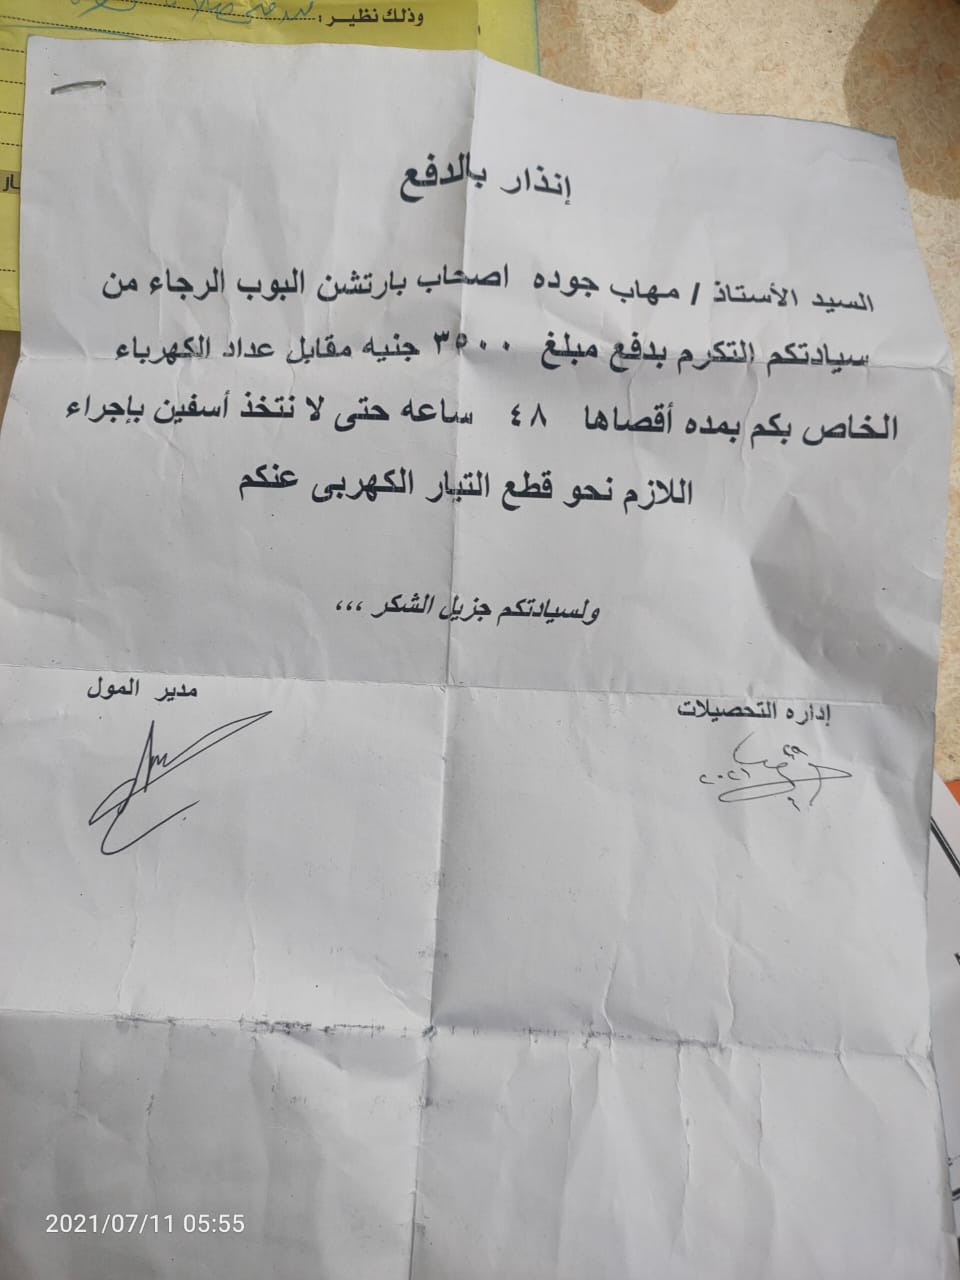 وذلك نظير :
إنذار بالدفع
السيد الأستاذ / مهاب جوده اصحاب بارتشن البوب الرجاء من
سيادتكم التكرم بدفع مبلغ ٣٥٠٠ جنيه مقابل عداد الكهرباء
الخاص بكم بمده أقصاها ٤٨ ساعه حتى لا نتخذ أسفين بإجراء
اللازم نحو قطع التيار الكهربى عنكم
ولسيادتكم جزيل الشكر ،،،
إداره التحصيلات
مدير المول
2021/07/11 05:55